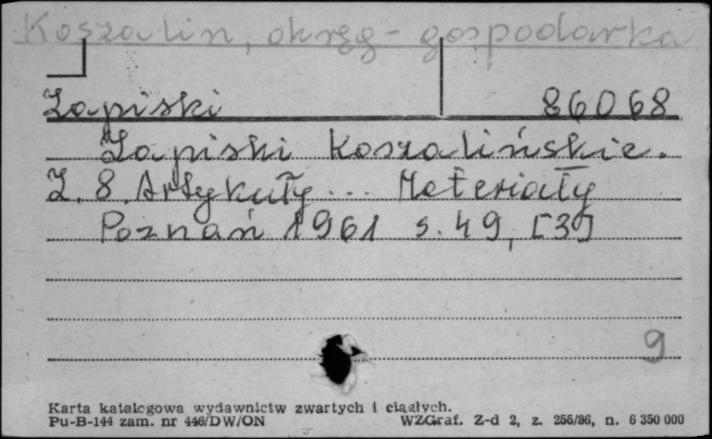 Koszalin, okręg - gospodarka
Zapiski 86068
Zapiski Koszalińskie.
Z. 8. Artykuły... Materiały
Poznań 1961 s. 49, [3]
9
Karta katalogowa wydawnictw zwartych i ciągłych.
Pu-B-144 zam. nr 446/DW/ON WZGraf. Z-d 2, z. 255/86, n. 6 350 000